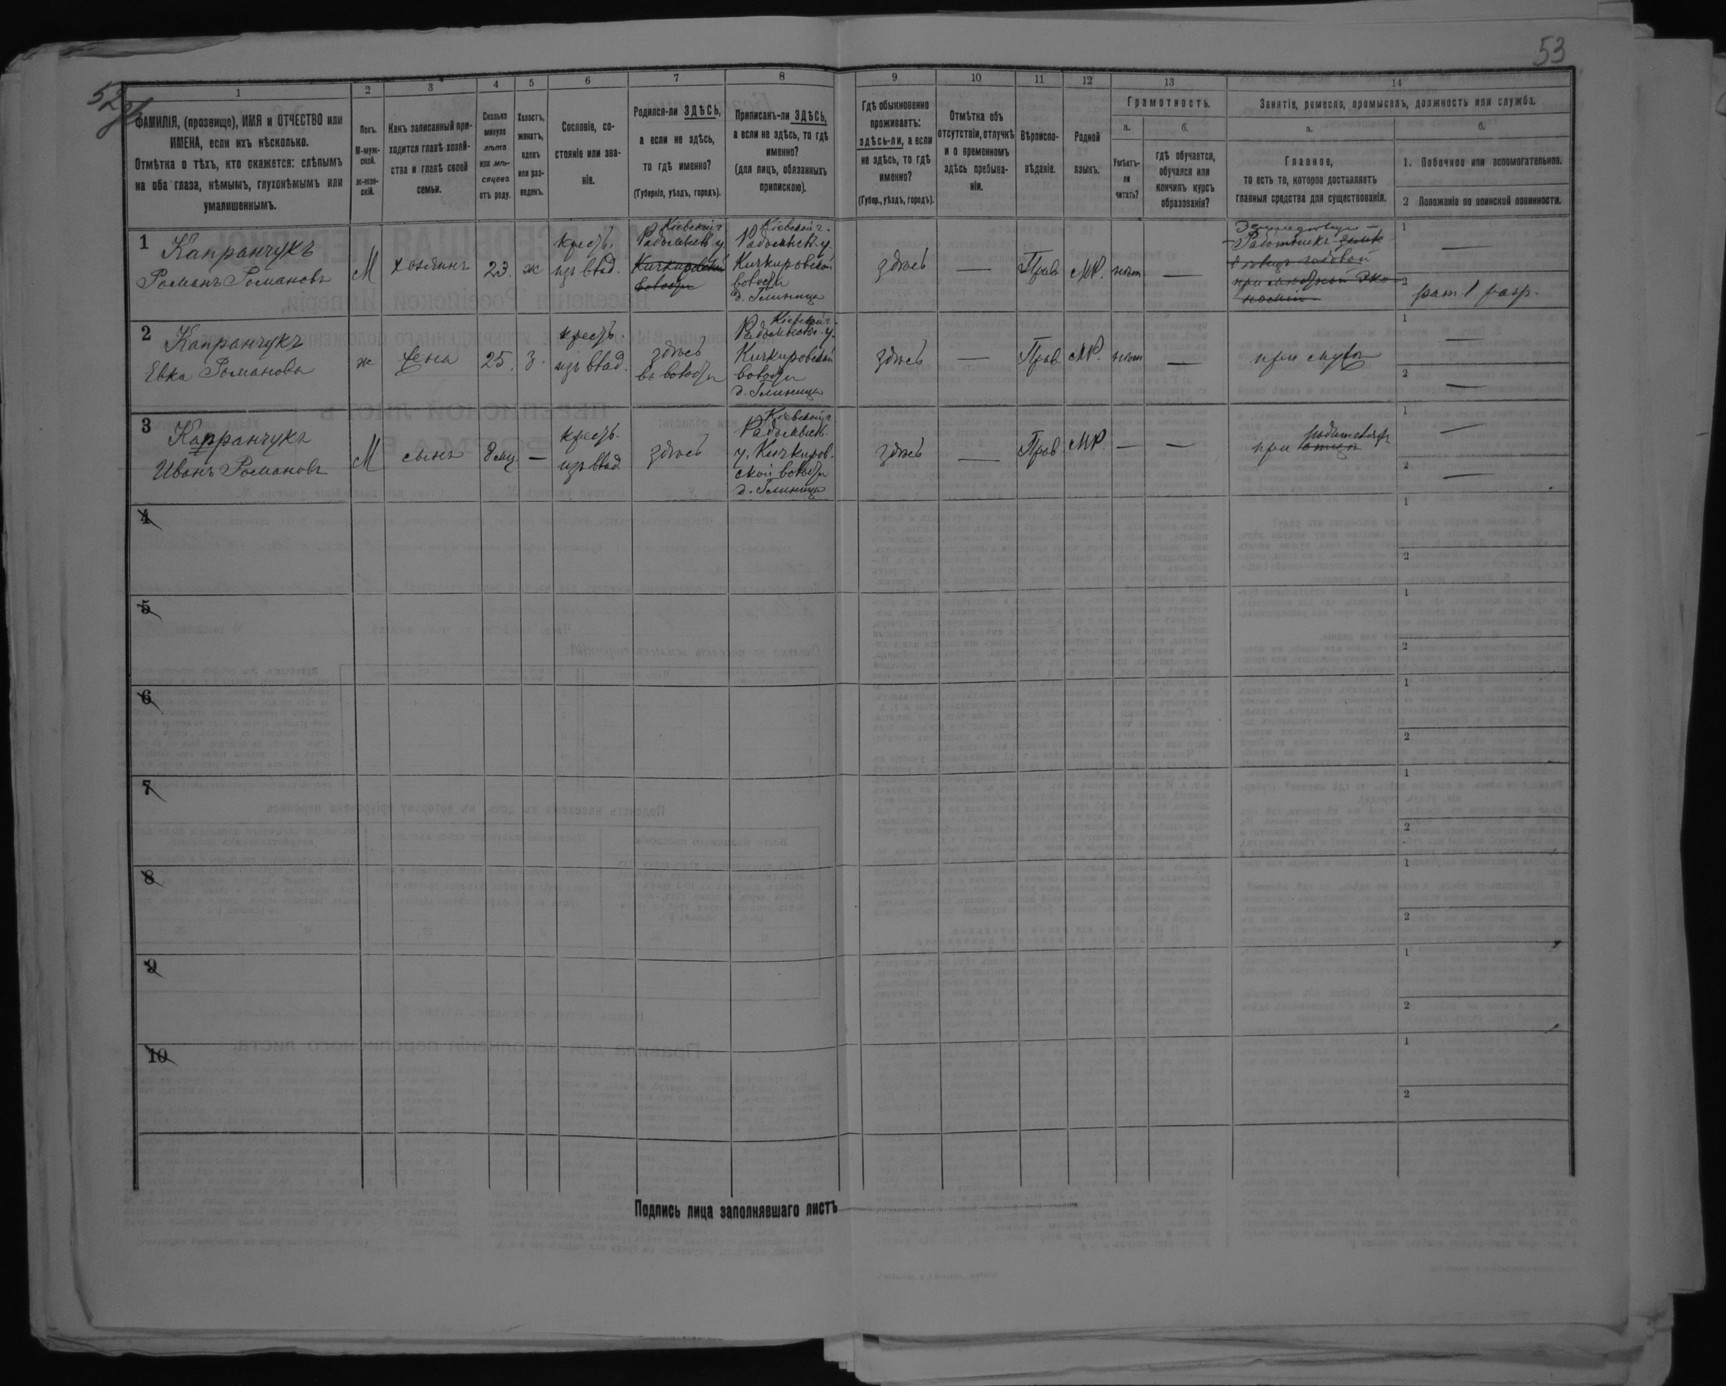 53
52 об
1 2 3 4 5 6 7 8 9 10 11 12 13 14
ФАМИЛІЯ, (прозвище), ИМЯ и ОТЧЕСТВО или
ИМЕНА, если ихъ нѣсколько.
Отмѣтка о тѣхъ, кто окажется: слѣпымъ
на оба глаза, нѣмымъ, глухонѣмымъ или
умалишеннымъ.
Полъ.
М-муж-
ской.
Ж-жен-
скій.
Какъ записанный при-
ходится главѣ хозяй-
ства и главѣ своей
семьи.
Сколько
минуло
лѣтъ
или мѣ-
сяцевъ
отъ роду.
Холостъ,
женатъ,
вдовъ
или раз-
веденъ.
Сословіе, со-
стояніе или зва-
ніе.
Родился-ли ЗДѢСЬ,
а если не здѣсь,
то гдѣ именно?
(Губернія, уѣздъ, городъ).
Приписанъ-ли ЗДѢСЬ,
а если не здѣсь, то гдѣ
именно?
(для лицъ, обязанныхъ
припискою).
Гдѣ обыкновенно
проживаетъ:
здѣсь-ли, а если
не здѣсь, то гдѣ
именно?
(Губер., уѣздъ, городъ).
Отмѣтка объ
отсутствіи, отлучкѣ
и о временномъ
здѣсь пребыва-
ніи.
Вѣроиспо-
вѣданіе.
Родной
языкъ.
Грамотность.
а. б.
Умѣетъ-
ли
читать?
гдѣ обучается,
обучался или
кончилъ курсъ
образованія?
Занятіе, ремесло, промыселъ, должность или служба.
а. б.
Главное,
то есть то, которое доставляетъ
главныя средства для существованія.
1. Побочное или вспомогательное.
2 Положеніе по воинской повинности.
1
Капранчукъ
Романъ Романовъ
М
хозяинъ
23.
ж
крест.
изъ влад.
Кіевской г.
Радомысл. у.
Кичкировской
волости
Кіевской г.
Радомысл. у.
Кичкировской
волости
д. Глиница
здѣсь
—
Прав.
МР.
нѣт
—
Работникъ
1 —
2 рат 1 разр.
2
Капранчукъ
Евка Романова
ж
жена
25.
з.
крест.
изъ влад.
здѣсь
въ волости
Кіевской г.
Радомысл. у.
Кичкировской
волости
д. Глиница
здѣсь
—
Прав.
МР.
нѣт
—
при мужѣ
1 —
2 —
3
Капранчукъ
Иванъ Романовъ
М
сынъ
8 мц
—
крест.
изъ влад.
здѣсь
Кіевской г.
Радомысл.
у. Кичкиров-
ской волости
д. Глиница
здѣсь
—
Прав.
МР.
—
—
при отцѣ
1 —
2 —
4
1
2
5
1
2
6
1
2
7
1
2
8
1
2
9
1
2
10
1
2
Подпись лица заполнявшаго листъ